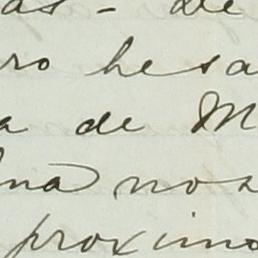 as - de
ro hesa
a de M
na nos
proxim